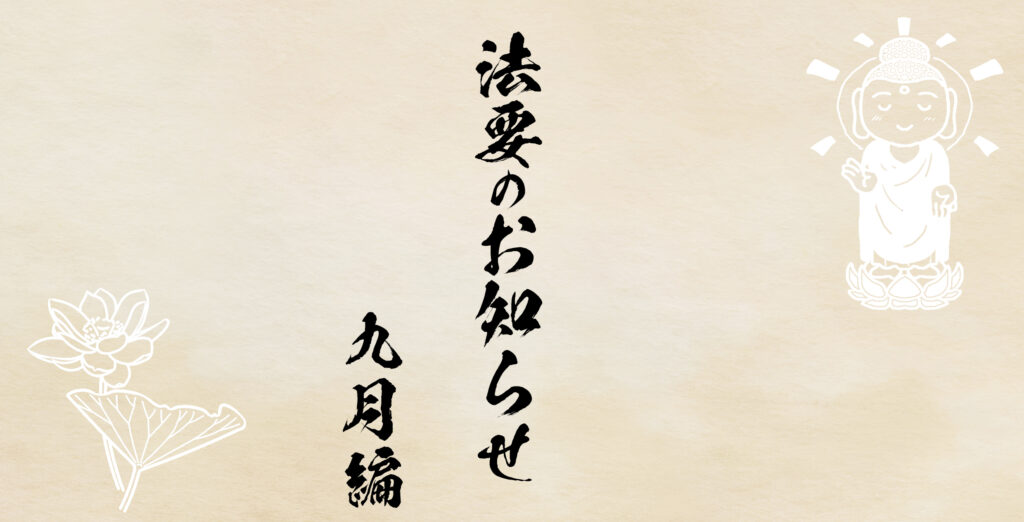 法要のお知らせ
九月編